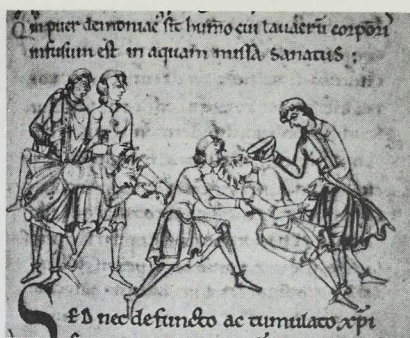 Qm puer demoniac sit humo cui lavacrũ corporis
infusum est in aquam missa sanatus :
SED nec defuncto ac tumulato xpi